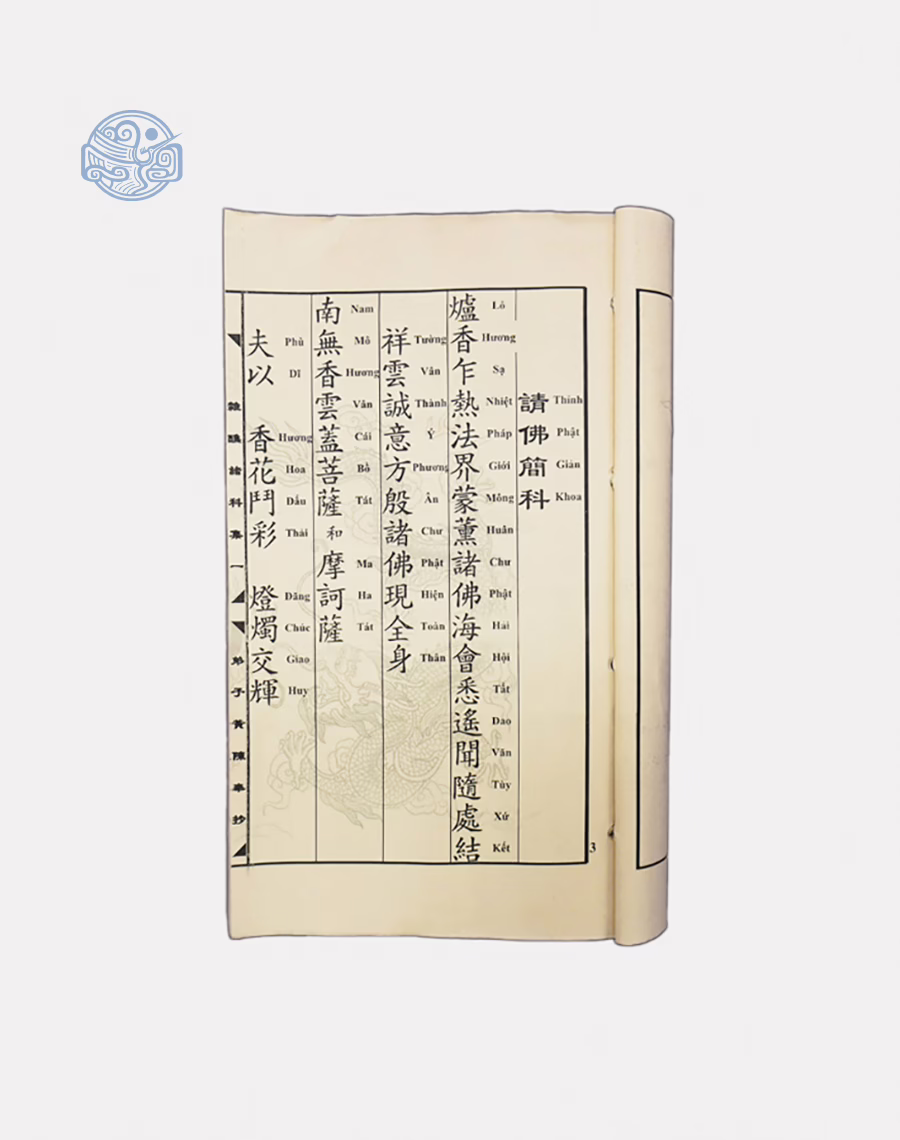 請佛簡科
Thỉnh Phật Giản Khoa
爐香乍熱法界蒙薰諸佛海會悉遙聞隨處結
Lô Hương Sạ Nhiệt Pháp Giới Mông Huân Chư Phật Hải Hội Tất Dao Văn Tùy Xứ Kết
祥雲誠意方殷諸佛現全身
Tường Vân Thành Ý Phương Ân Chư Phật Hiện Toàn Thân
南無香雲蓋菩薩和摩訶薩
Nam Mô Hương Vân Cái Bồ Tát Ma Ha Tát
夫以 香花鬥彩 燈燭交輝
Phù Dĩ Hương Hoa Đấu Thái Đăng Chúc Giao Huy
雜醮諸科集一
弟子黃陳奉抄
3